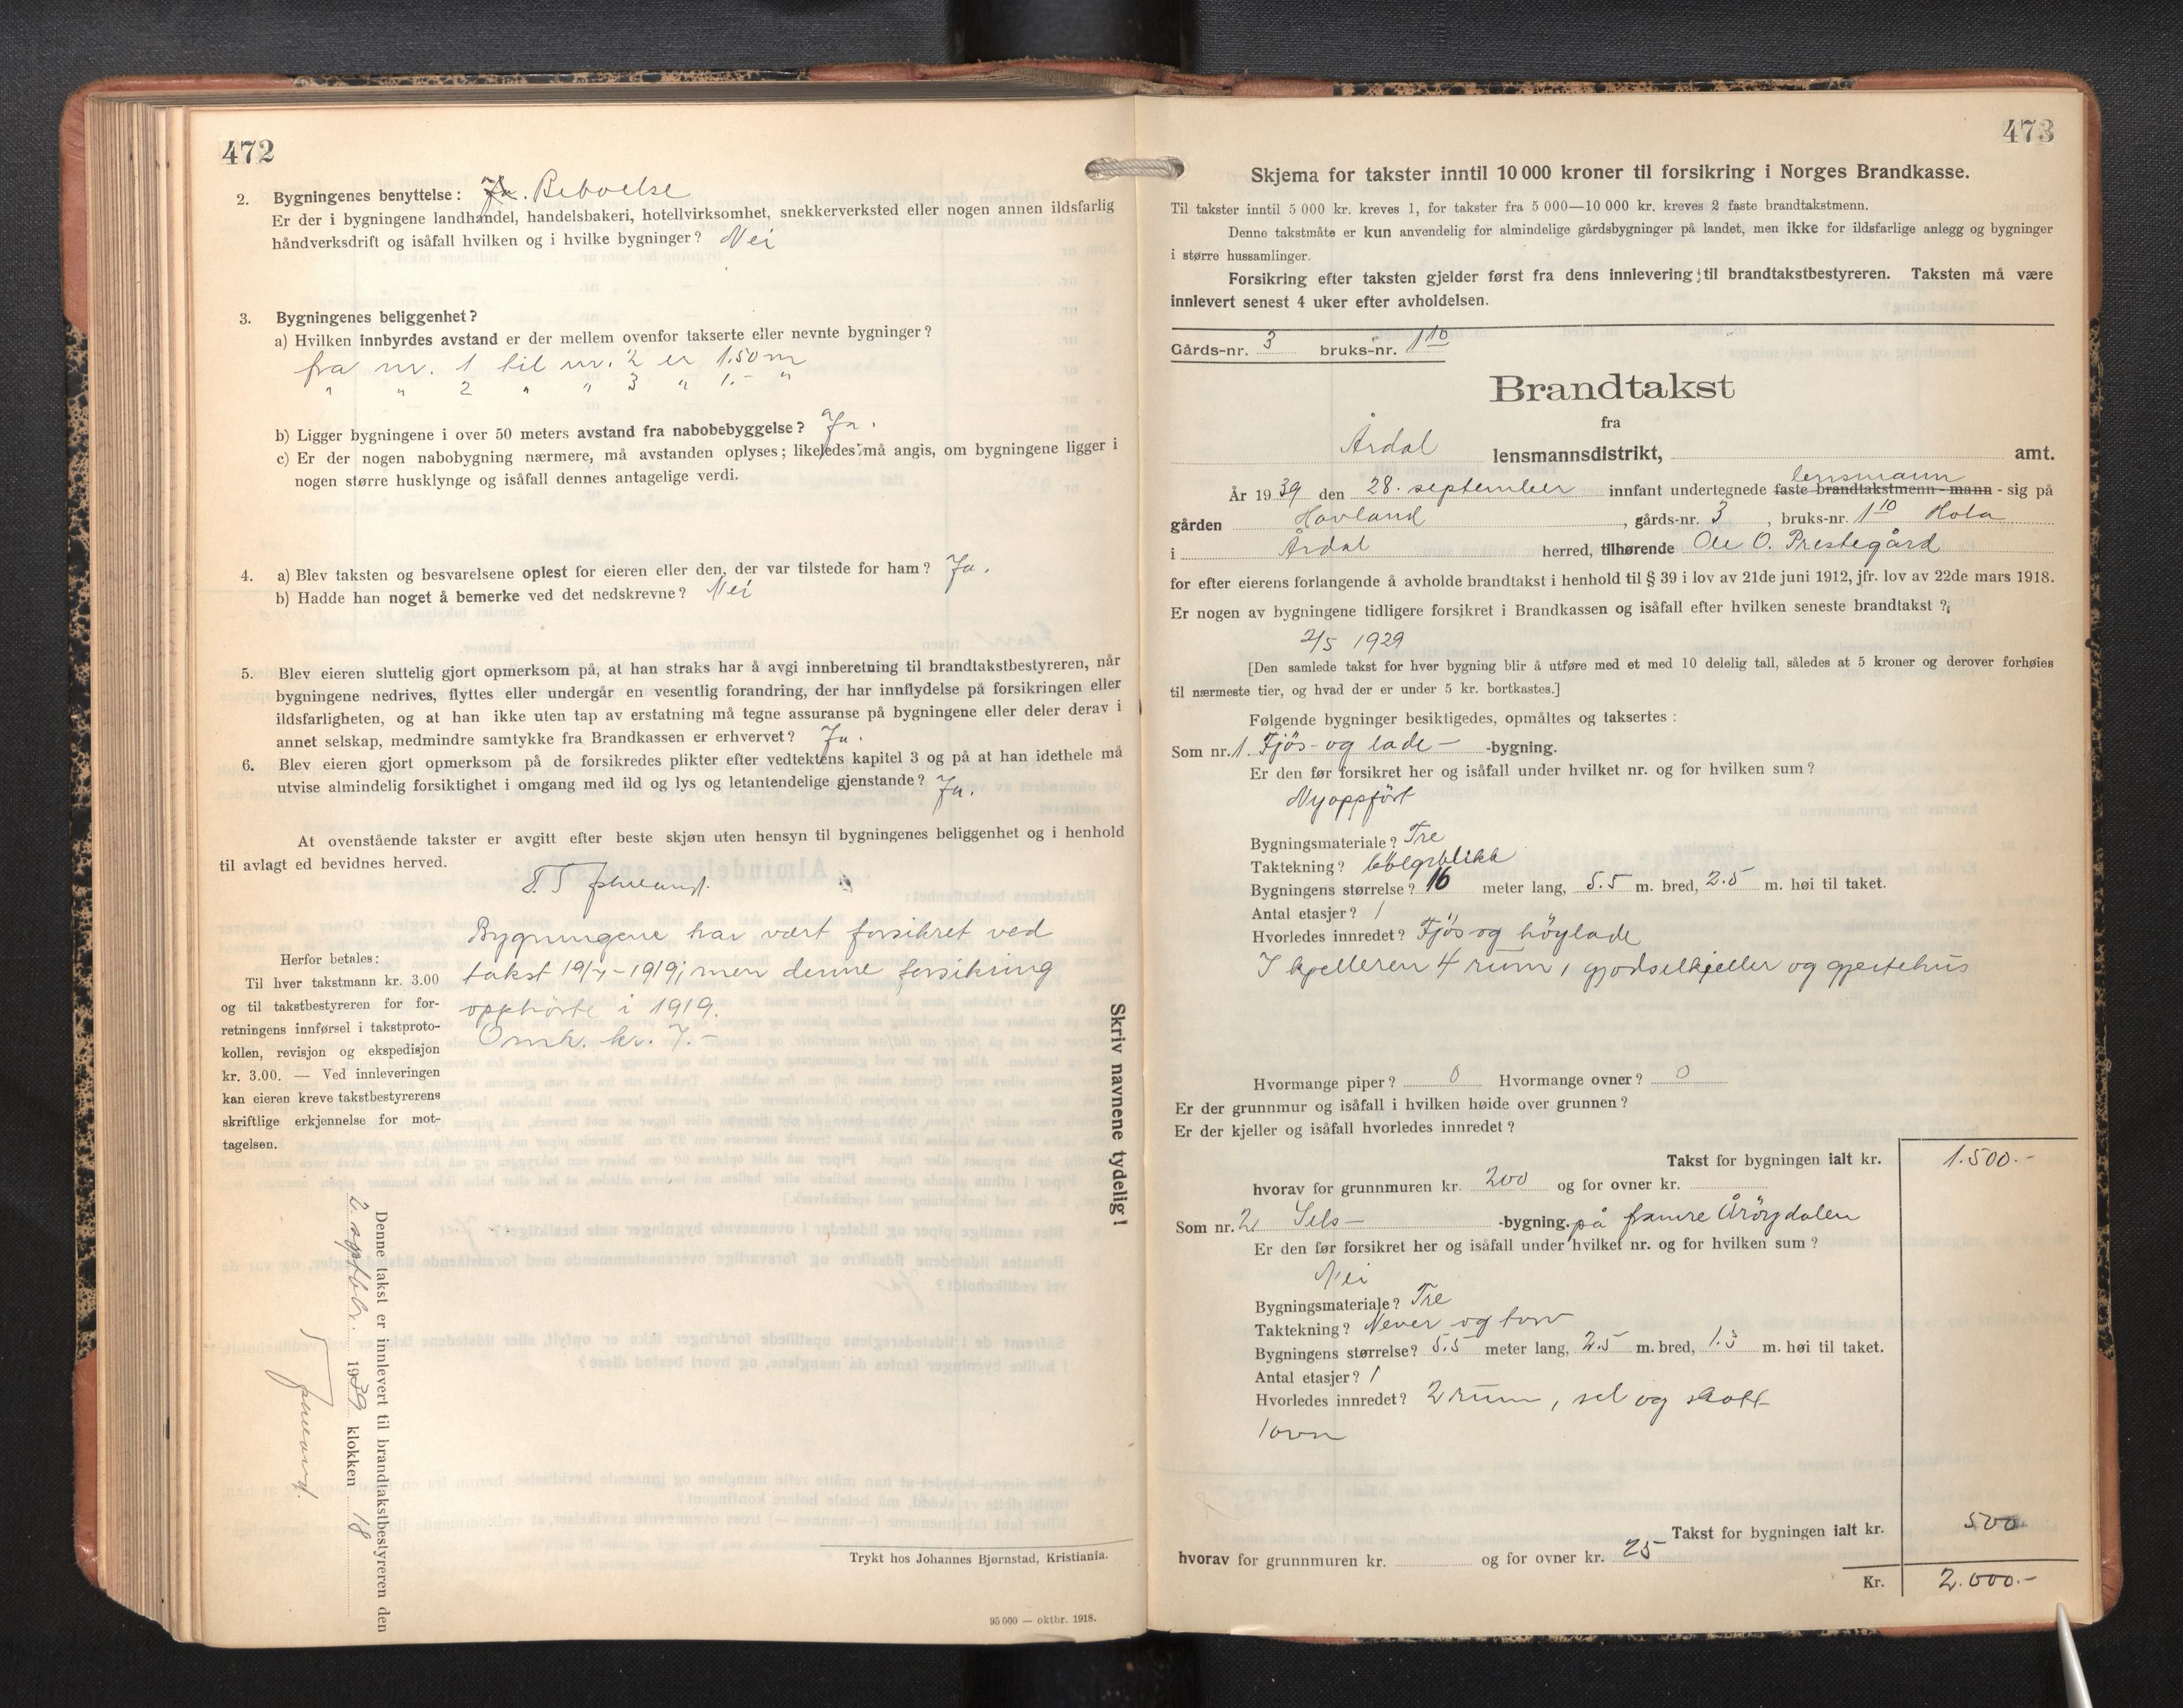 472
2. Bygningenes benyttelse: Ja. Beboelse
Er der i bygningene landhandel, handelsbakeri, hotellvirksomhet, snekkerverksted eller nogen annen ildsfarlig
håndverksdrift og isåfall hvilken og i hvilke bygninger? Nei
3. Bygningenes beliggenhet?
a) Hvilken innbyrdes avstand er der mellem ovenfor takserte eller nevnte bygninger?
fra nr. 1 til nr. 2 er 1.50 m
" " 2 " " 3 " 1.- "
b) Ligger bygningene i over 50 meters avstand fra nabobebyggelse? Ja.
c) Er der nogen nabobygning nærmere, må avstanden oplyses; likeledes må angis, om bygningene ligger i
nogen større husklynge og isåfall dennes antagelige verdi.
4. a) Blev taksten og besvarelsene oplest for eieren eller den, der var tilstede for ham? Ja.
b) Hadde han noget å bemerke ved det nedskrevne? Nei
5. Blev eieren sluttelig gjort opmerksom på, at han straks har å avgi innberetning til brandtakstbestyreren, når
bygningene nedrives, flyttes eller undergår en vesentlig forandring, der har innflydelse på forsikringen eller
ildsfarligheten, og at han ikke uten tap av erstatning må tegne assuranse på bygningene eller deler derav i
annet selskap, medmindre samtykke fra Brandkassen er erhvervet? Ja.
6. Blev eieren gjort opmerksom på de forsikredes plikter efter vedtektens kapitel 3 og på at han idethele må
utvise almindelig forsiktighet i omgang med ild og lys og letantendelige gjenstande? Ja.
At ovenstående takster er avgitt efter beste skjøn uten hensyn til bygningenes beliggenhet og i henhold
til avlagt ed bevidnes herved.
Bygningene har vært forsikret ved
takst 19/4-1919; men denne forsikring
opphörte i 1919.
Omk. kr. 7.-
Herfor betales:
Til hver takstmann kr. 3.00
og til takstbestyreren for for-
retningens innførsel i takstproto-
kollen, revisjon og ekspedisjon
kr. 3.00. — Ved innleveringen
kan eieren kreve takstbestyrerens
skriftlige erkjennelse for mot-
tagelsen.
Skriv navnene tydelig!
Denne takst er innlevert til brandtakstbestyreren den
2. septbr. 1939 klokken 18
Trykt hos Johannes Bjørnstad, Kristiania.
95 000 — oktbr. 1918.
473
Skjema for takster inntil 10 000 kroner til forsikring i Norges Brandkasse.
Til takster inntil 5 000 kr. kreves 1, for takster fra 5 000—10 000 kr. kreves 2 faste brandtakstmenn.
Denne takstmåte er kun anvendelig for almindelige gårdsbygninger på landet, men ikke for ildsfarlige anlegg og bygninger
i større hussamlinger.
Forsikring efter taksten gjelder først fra dens innlevering til brandtakstbestyreren. Taksten må være
innlevert senest 4 uker efter avholdelsen.
Gårds-nr. 3 bruks-nr. 1 10
Brandtakst
fra
Årdal lensmannsdistrikt, amt.
lensmann
År 1939 den 28. september innfant undertegnede faste brandtakstmenn - mann - sig på
gården Hovland, gårds-nr. 3, bruks-nr. 1 10 Hola
i Årdal herred, tilhørende Ole O. Prestegård
for efter eierens forlangende å avholde brandtakst i henhold til § 39 i lov av 21de juni 1912, jfr. lov av 22de mars 1918.
Er nogen av bygningene tidligere forsikret i Brandkassen og isåfall efter hvilken seneste brandtakst?
2/5 1929
[Den samlede takst for hver bygning blir å utføre med et med 10 delelig tall, således at 5 kroner og derover forhøies
til nærmeste tier, og hvad der er under 5 kr. bortkastes.]
Følgende bygninger besiktigedes, opmåltes og taksertes:
Som nr. 1. Fjös- og lade- -bygning.
Er den før forsikret her og isåfall under hvilket nr. og for hvilken sum?
Nyoppfört
Bygningsmateriale? Tre
Taktekning? bölgeblikk
Bygningens størrelse? 16 meter lang, 5.5 m. bred, 2.5 m. høi til taket.
Antal etasjer? 1
Hvorledes innredet? Fjös og höylade
I kjelleren 4 rum, gjødselkjeller og gjeitehus
Hvormange piper? 0 Hvormange ovner? 0
Er der grunnmur og isåfall i hvilken høide over grunnen?
Er der kjeller og isåfall hvorledes innredet?
Takst for bygningen ialt kr. 1.500.-
hvorav for grunnmuren kr. 200 og for ovner kr.
Som nr. 2 Sels- -bygning. på framre Åröydalen
Er den før forsikret her og isåfall under hvilket nr. og for hvilken sum?
Nei
Bygningsmateriale? Tre
Taktekning? Never og torv
Bygningens størrelse? 5.5 meter lang, 2.5 m. bred, 1.3 m. høi til taket.
Antal etasjer? 1
Hvorledes innredet? 2 rum, sel og skott
1 ovn
Takst for bygningen ialt kr. 500
hvorav for grunnmuren kr. og for ovner kr. 25
Kr. 2.000.-